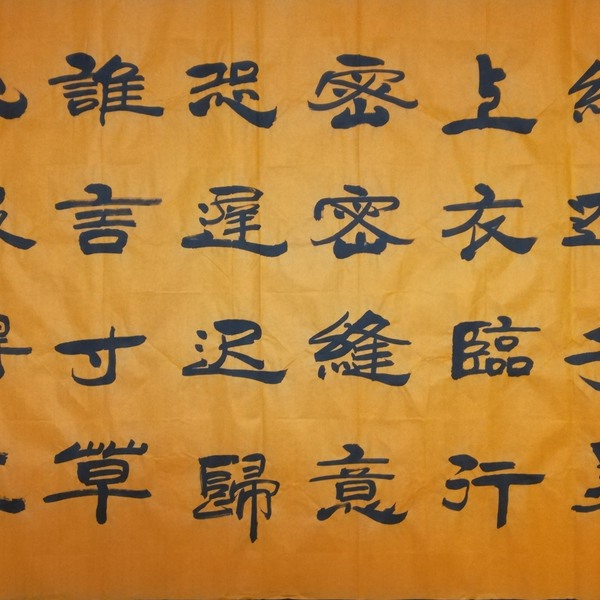 上衣臨行
密密縫意
恐遲迟歸
誰言寸草